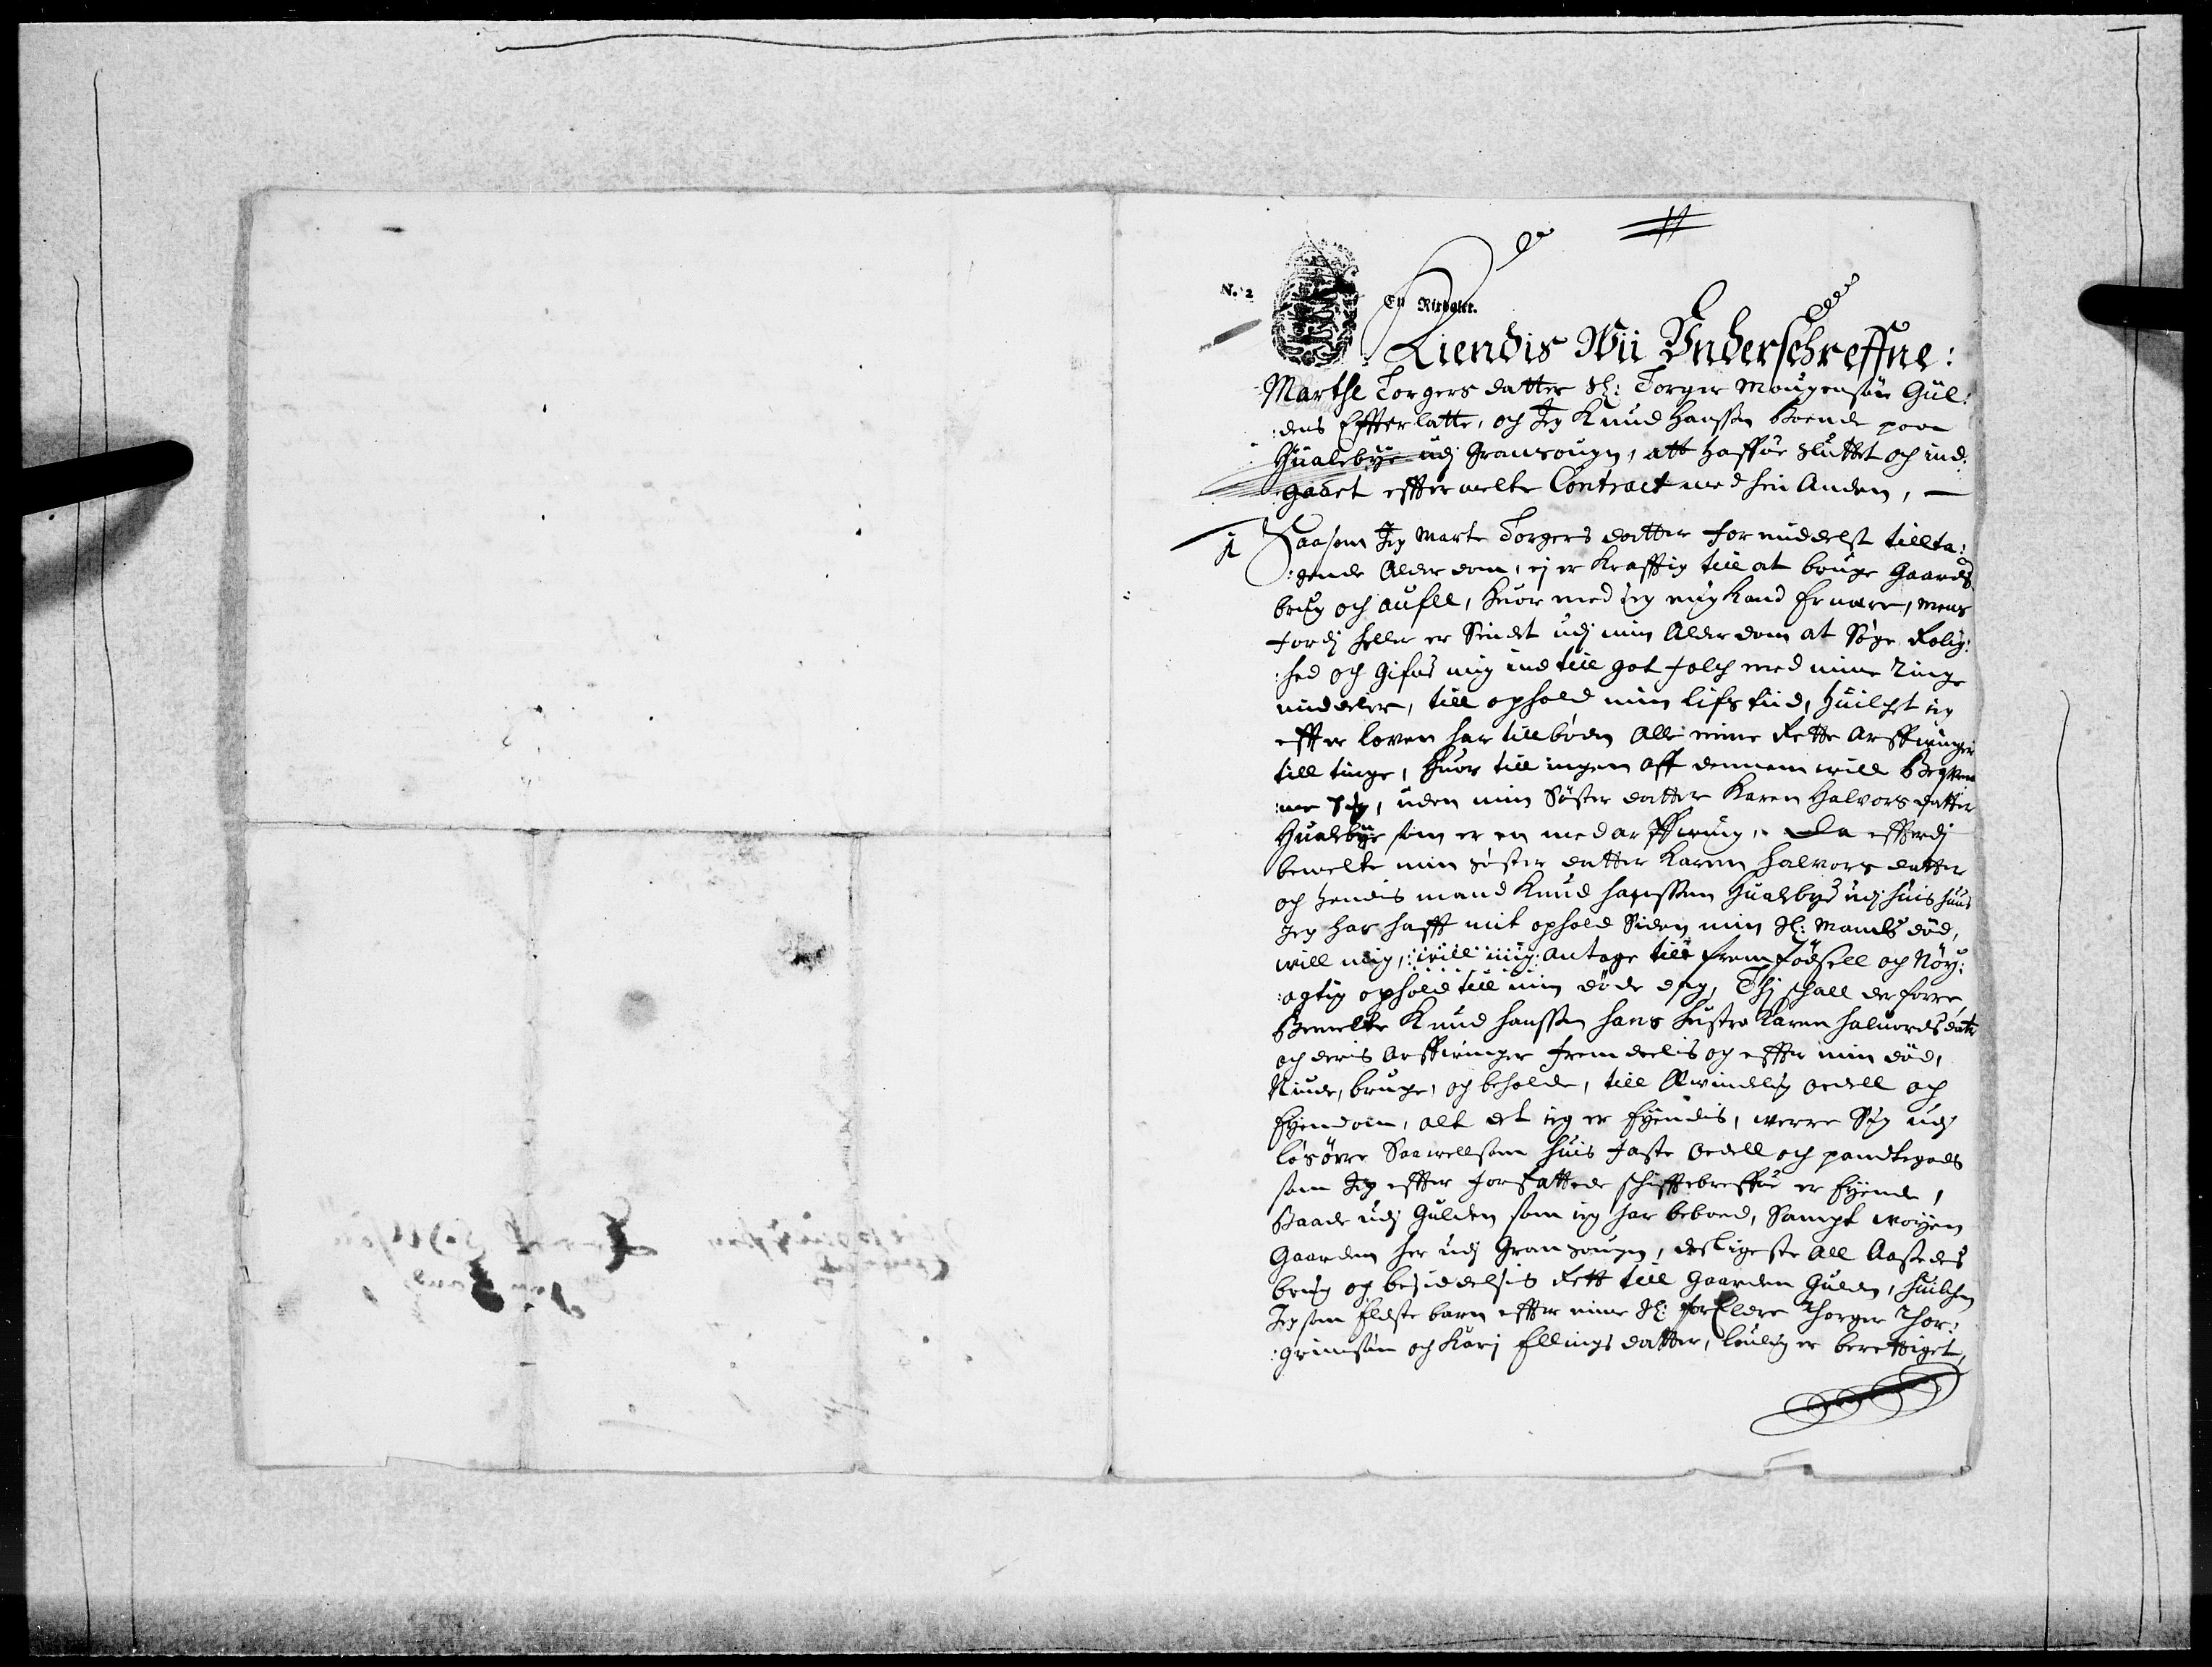 N.º 2
En Rixdaler.
Kiendis Wii Underschreffne:
Marthe Torgers datter Sl: Torger Mougensøn Gul:
:dens Effterlatte, och Jeg Knud Hanssen Boende paa
Hualebye udj Gransougn, att haffue sluttet och ind:
gaaet effter melte Contract med hin Anden, —
1 Saasom Jeg Marte Torgers datter formiddelst tillta:
:gende Alderdom, ej er Krafftig till at bruge Gaards
brug och aufle, huor med jeg mig Kand Ernære, mens
fordj heller er Sindet udj min Alderdom at Søge Rolig:
:hed och Gifue mig ind till got folch med mine Ringe
middeler, till ophold min lifs tiid, huilchet ieg
effter loven har tillbøden Alle mine Rette Arffuinger
till tinge, huor till ingen aff dennem will Beqvem
:me Sig, uden min Søster datter Karen Halvors datter
Hualebye som er en med arffuing, Da efftterdj
bemelte min søster datter Karen Halvors datter
och hendis mand Knud Hanssen Hualebye udj huis huus
Jeg har hafft mit ophold Siden min Sl: Mands død,
will mig, :will mig: Antage till fremfødsell og Nøy:
:agtig ophold till min døde dag, Thj schall derforre
Bemelte Knud Hanssen hans hustro Karen Haluords datr
och deris Arffuinger fremdeelis og effter min død,
Niude, bruge, og beholde, till Ævindelig oedell och
Eyendom, alt det ieg er Eyendis, werre Sig udj
løsøre Saawellsom huis faste oedell och pandtegods
som Jeg effter forfattede schifftebreffue er Eyende,
Baade udj Gulden som ieg har beboed, Sampt woyen
Gaarden her udj Gransougn, desligeste All Aasædes
brug og besiddelsis Rett till Gaarden Gulden, huilchen
Jeg som Eldste barn effter mine Sl: forEldre Thorger Thor:
:grimsøn och Karj Ellings datter, loulig er berettiget,